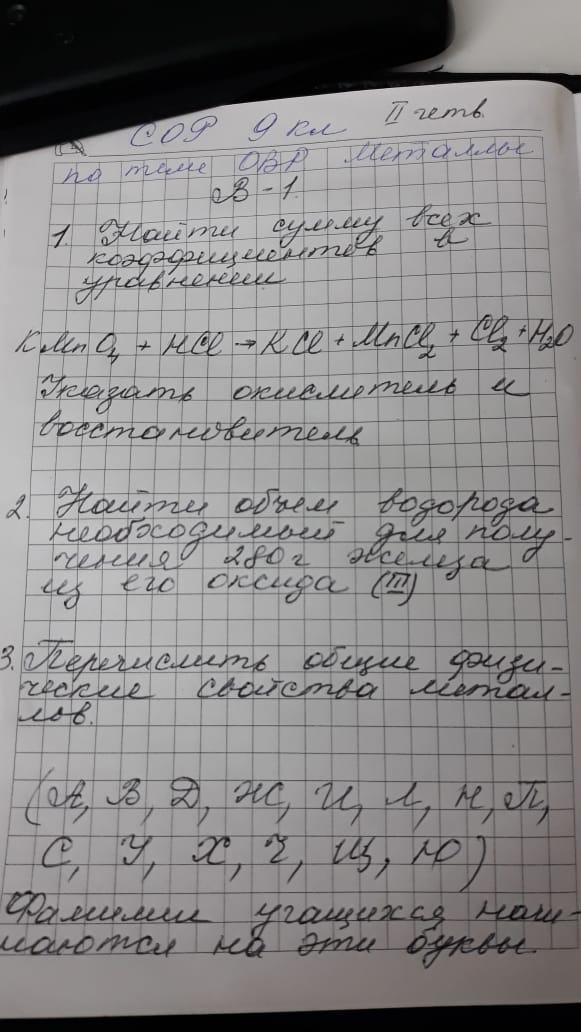 СОР 9 кл II четв.
по теме ОВР Металлы
В - 1.
1. Найти сумму всех
коэффициентов в
уравнении
KMnO₄ + HCl → KCl + MnCl₂ + Cl₂ + H₂O
Указать окислитель и
восстановитель
2. Найти объем водорода
необходимый для полу-
чения 280г железа
из его оксида (III)
3. Перечислить общие физи-
ческие свойства метал-
лов.
(А, В, Д, Ж, И, Л, Н, П,
С, У, Х, Ч, Щ, Ю)
Фамилии учащихся начи-
наются на эти буквы.